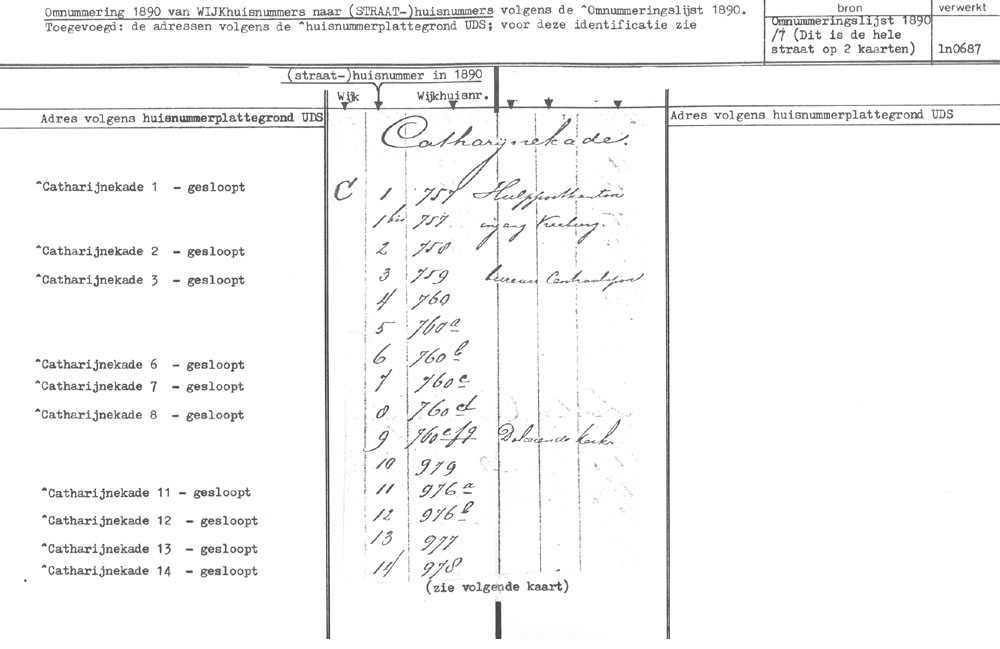 Omnummering 1890 van WIJKhuisnummers naar (STRAAT-)huisnummers volgens de ^Omnummeringslijst 1890.
Toegevoegd: de adressen volgens de ^huisnummerplattegrond UDS; voor deze identificatie zie
bron
Omnummeringslijst 1890
/7 (Dit is de hele
straat op 2 kaarten)
verwerkt
ln0687
(straat-)huisnummer in 1890
Wijk Wijkhuisnr.
Adres volgens huisnummerplattegrond UDS
Adres volgens huisnummerplattegrond UDS
Catharijnekade.
^Catharijnekade 1 - gesloopt C 1 757 Hulppostkantoor
1 bis 757 ingang
^Catharijnekade 2 - gesloopt 2 758
^Catharijnekade 3 - gesloopt 3 759 bureau
4 760
5 760a
^Catharijnekade 6 - gesloopt 6 760b
^Catharijnekade 7 - gesloopt 7 760c
^Catharijnekade 8 - gesloopt 8 760d
9 760efg Doleerende kerk
10 979
^Catharijnekade 11 - gesloopt 11 976a
^Catharijnekade 12 - gesloopt 12 976b
^Catharijnekade 13 - gesloopt 13 977
^Catharijnekade 14 - gesloopt 14 978
(zie volgende kaart)